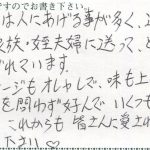 ですのでお書き下さい
は人にあげる事が多く、
家族・姪夫婦に送って、と
れています。
ージもオシャレで、味も上
を問わず好んで いくつも
これからも 皆さんに愛され
下さい♡